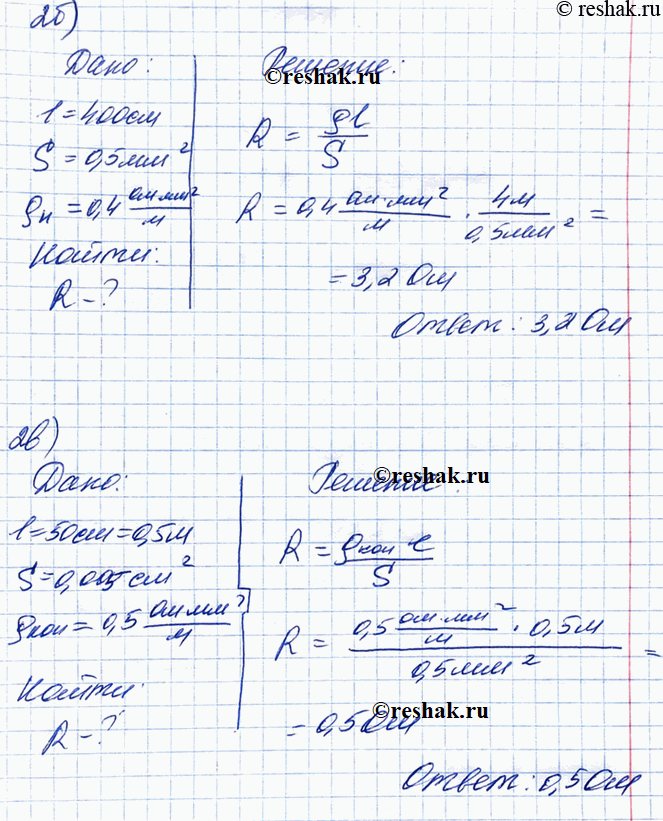 © reshak.ru
2б)
Дано:
l = 400см
S = 0,5мм²
ρн = 0,4 ом мм²/м
Найти:
R - ?
Решение:
© reshak.ru
R = ρl/S
R = 0,4 ом·мм²/м · 4м/0,5мм² =
= 3,2 Ом
Ответ: 3,2 Ом
2в)
Дано:
l = 50см = 0,5м
S = 0,005см²
ρкон = 0,5 Ом мм²/м
Найти:
R - ?
Решение:
© reshak.ru
R = ρкон l/S
R = 0,5 ом·мм²/м · 0,5м/0,5мм² =
© reshak.ru
= 0,5 Ом
Ответ: 0,5 Ом